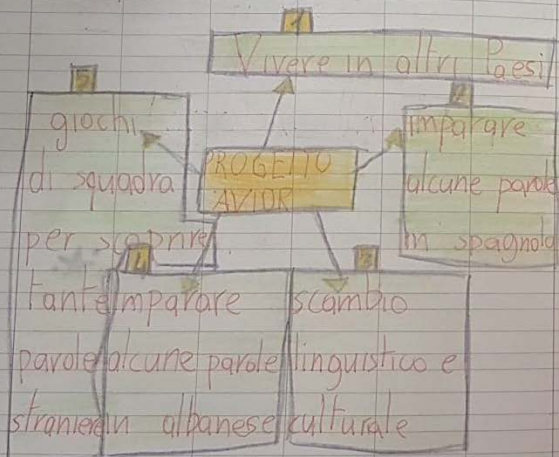 1
Vivere in altri Paesi
2
imparare
alcune parole
in spagnolo
PROGETTO
AVIOR
3
scambio
linguistico e
culturale
4
imparare
alcune parole
in albanese
5
giochi
di squadra
per scoprire
tante
parole
straniere